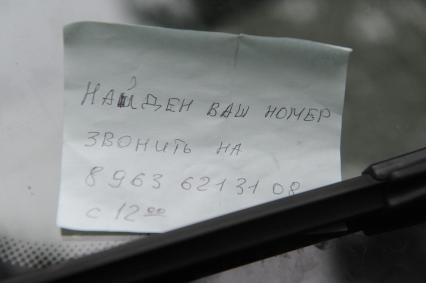 НАЙДЕН ВАШ НОМЕР
ЗВОНИТЬ НА
8 963 621 31 08
С 12⁰⁰